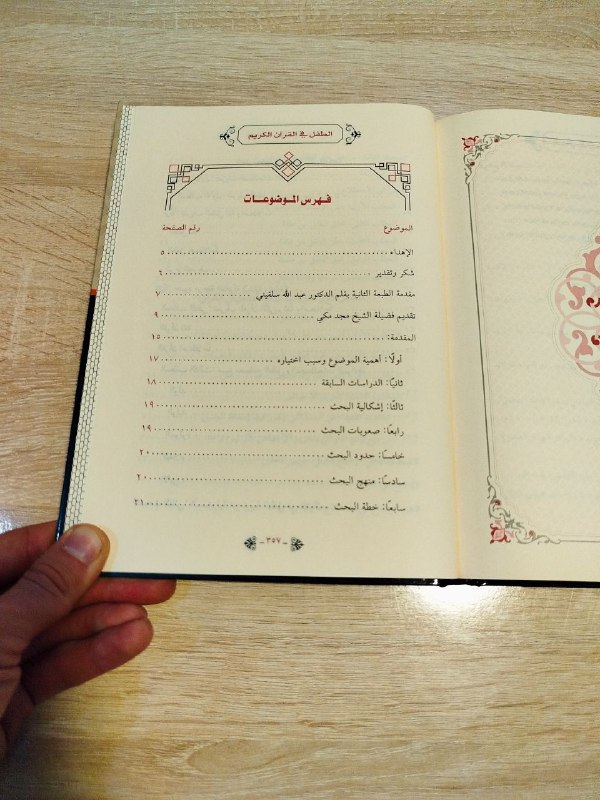 الطفل في القرآن الكريم
فهرس الموضوعات
الموضوع رقم الصفحة
الإهداء ٥
شكر وتقدير ٦
مقدمة الطبعة الثانية بقلم الدكتور عبد الله سلقيني ٧
تقديم فضيلة الشيخ مجد مكي ٩
المقدمة: ١٥
أولًا: أهمية الموضوع وسبب اختياره ١٧
ثانيًا: الدراسات السابقة ١٨
ثالثًا: إشكالية البحث ١٩
رابعًا: صعوبات البحث ١٩
خامسًا: حدود البحث ٢٠
سادسًا: منهج البحث ٢٠
سابعًا: خطة البحث ٢١
- ٣٥٧ -